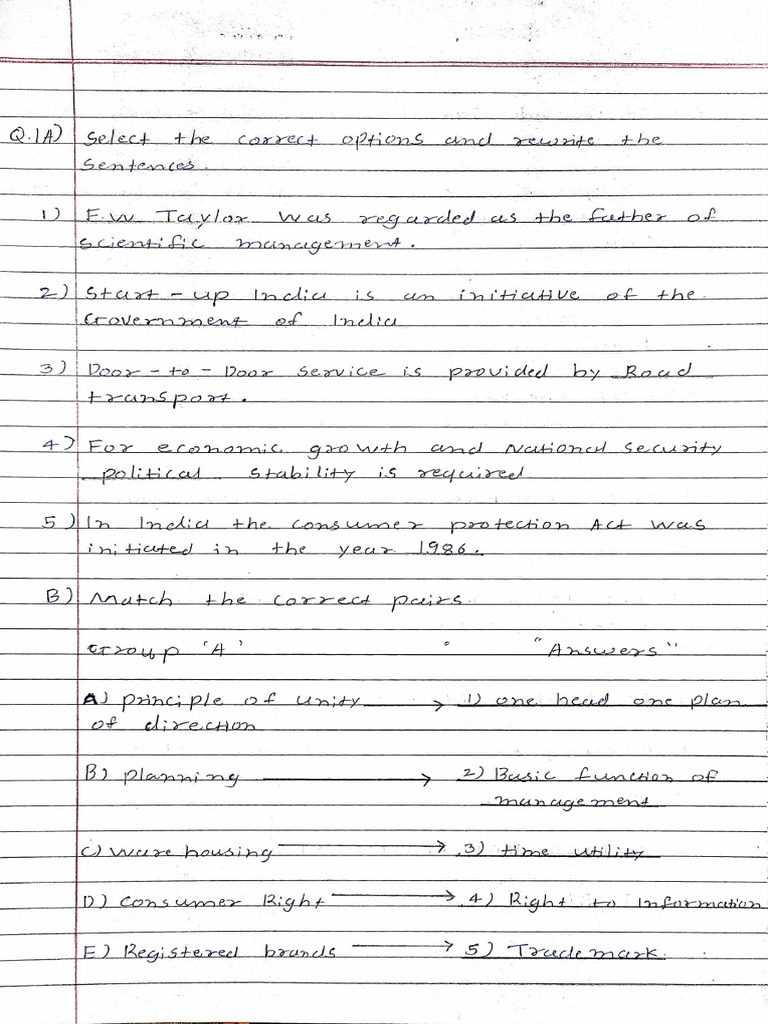 Q.1A) Select the correct options and rewrite the
sentences.
1) F.W. Taylor was regarded as the father of
scientific management.
2) Start-up India is an initiative of the
Government of India
3) Door-to-Door service is provided by Road
transport.
4) For economic growth and National security
political stability is required
5) In India the consumer protection Act was
initiated in the year 1986.
B) Match the correct pairs.
Group 'A' "Answers"
A) principle of unity → 1) one head one plan
of direction
B) planning → 2) Basic function of
management
C) Ware housing → 3) time utility
D) Consumer Right → 4) Right to Information
E) Registered brands → 5) Trade mark.